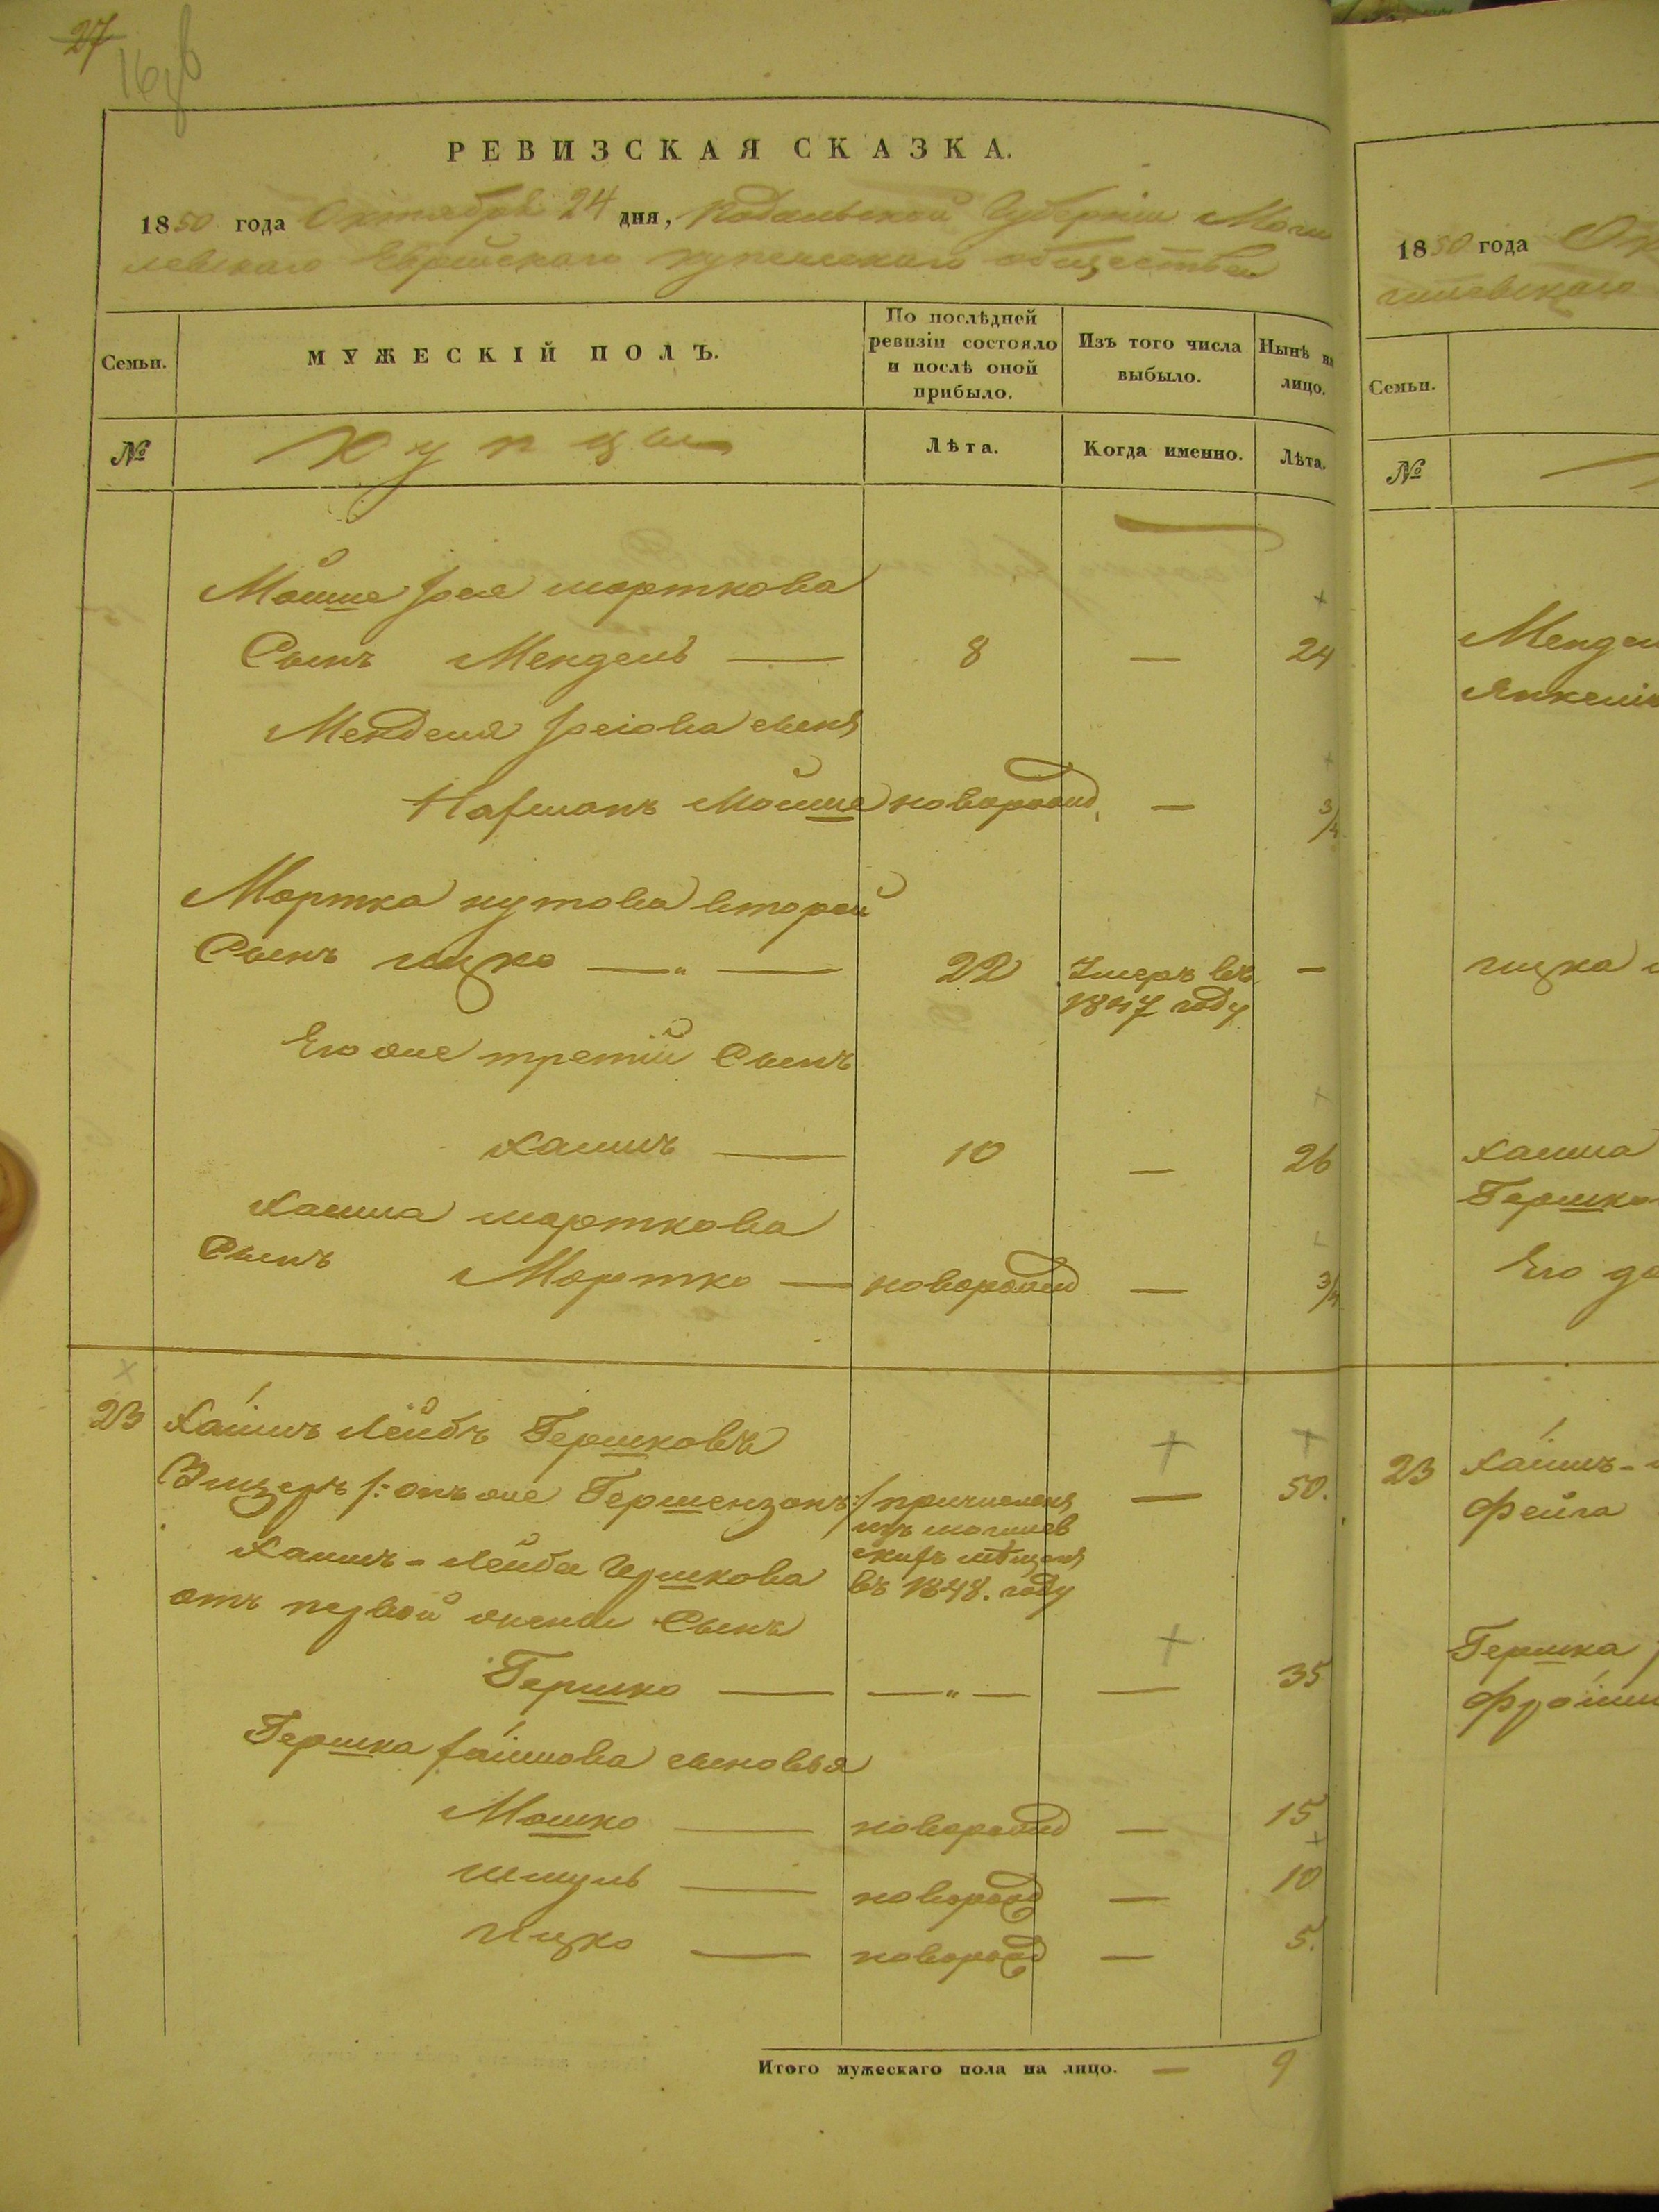 27
РЕВИЗСКАЯ СКАЗКА.
1850 года Октября 24 дня, Подольской Губернии Моги
левскаго Еврейскаго купеческаго общества
Семьи.
МУЖЕСКІЙ ПОЛЪ.
По послѣдней ревизіи состояло и послѣ оной прибыло.
Изъ того числа выбыло.
Нынѣ на лицо.
№
Купцы
Лѣта.
Когда именно.
Лѣта.
Мойше Іося Морткова
Сынъ Мендель — 8 — 24
Менделя Іосіова сынъ
Нахманъ Мойше новорожд. — 3/4
Мортка Нутова второй
Сынъ Ицко — " — 22 Умеръ въ —
1847 году
Его же третій Сынъ
Хаимъ — 10 — 26
Хаима Морткова
Сынъ Мортко — новорожд — 3/4
23 Хаимъ Лейбъ Гершковъ
Зицеръ /: онъ же Гершензонъ :/ причисленъ — 50.
изъ могилев
скихъ мѣщанъ
въ 1848. году
Хаимъ-Лейба Гершкова
отъ первой жены Сынъ
Гершко — — " — — 35
Гершка Хаимова сыновья
Мошко — новорожд — 15
Шмуль — новорожд — 10
Ицко — новорожд — 5.
Итого мужескаго пола на лицо. — 9
1850 года
Семьи.
№
Ицка
Хаима
Гершко
Его
23 Хаимъ-
Фейга
Гершка